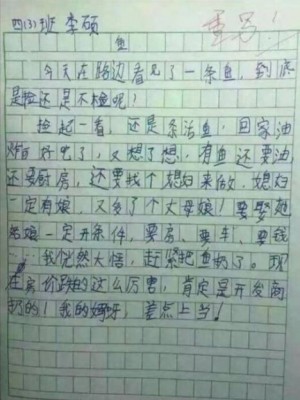 四(3)班 李硕
重写!
鱼
今天在路边看见了一条鱼,到底
是捡还是不捡呢!
捡起一看,还是条活鱼,回家油
炸好吧了,又想了想,有鱼还要油
还要厨房,还要找个媳妇来做,媳妇
一定有娘,又多了个丈母娘!要娶她
姑娘一定开条件,要房、要车、要钱
……我恍然大悟,赶紧把鱼扔了。现
在房价跌的这么厉害,肯定是开发商
扔的!我的妈呀,差点上当!